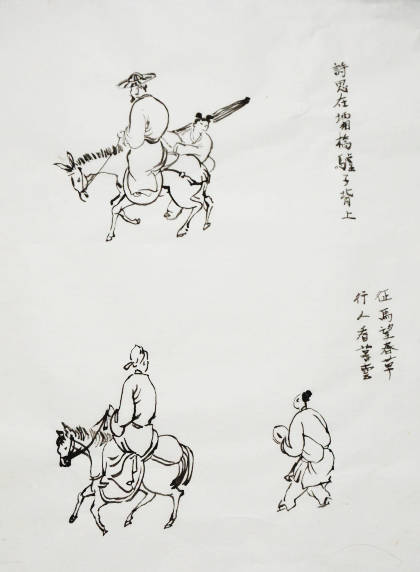 詩思在橋驢子背上
征馬望春草
行人看暮雲